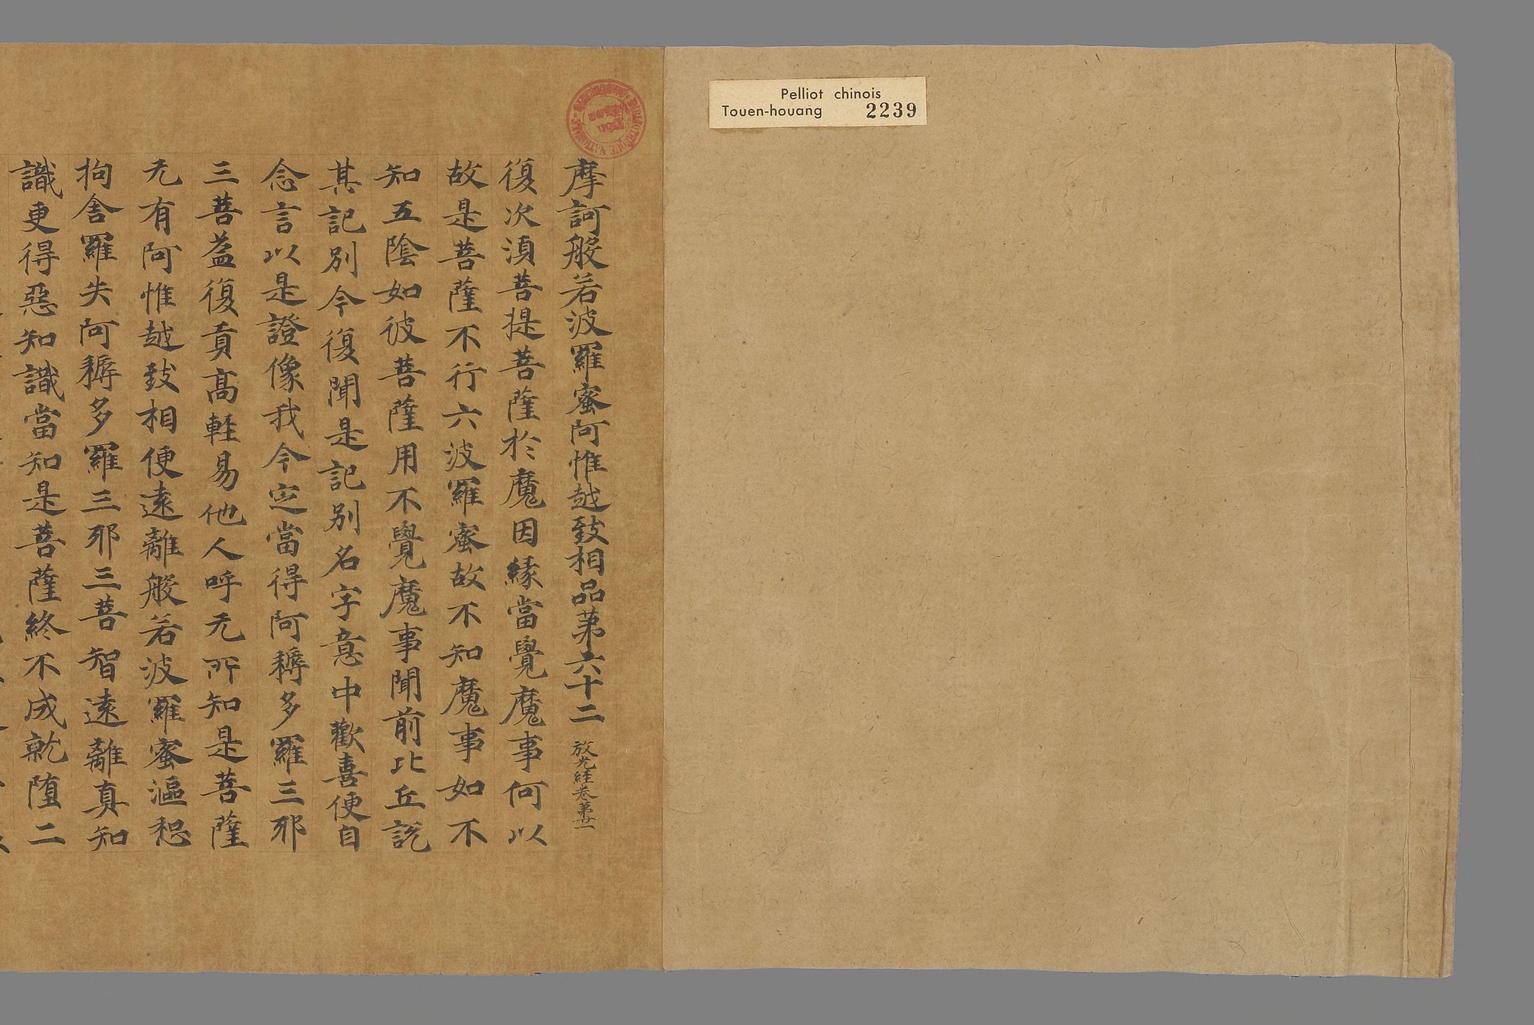 Pelliot chinois
Touen-houang 2239
摩訶般若波羅蜜阿惟越致相品第六十二 放光経卷第廿一
復次湏菩提菩薩於魔因縁當覺魔事何以
故是菩薩不行六波羅蜜故不知魔事如不
知五陰如彼菩薩用不覺魔事聞前比丘説
其記別今復聞是記別名字意中歡喜便自
念言以是證像我今定當得阿耨多羅三耶
三菩葢復貢髙輕易他人呼无所知是菩薩
无有阿惟越致相便遠離般若波羅蜜漚惒
拘舎羅失阿耨多羅三耶三菩智遠離真知
識更得惡知識當知是菩薩終不成就堕二